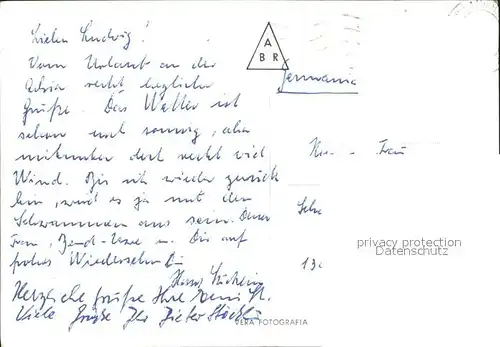 Lieber Ludwig!
Vom Urlaub an der
Adria recht herzliche
Grüße. Das Wetter ist
schön und sonnig, aber
mitunter dort recht viel
Wind. Bis ich wieder zurück
bin, wird es ja mit den
Schwammen aus sein. Deiner
Frau, u. Dir auf
frohes Wiedersehen
Hans
Herzliche Grüße Ihre
Viele Grüße Ihr Dieter
A
B R
Germania
Frau
privacy protection
Datenschutz
VERA FOTOGRAFIA